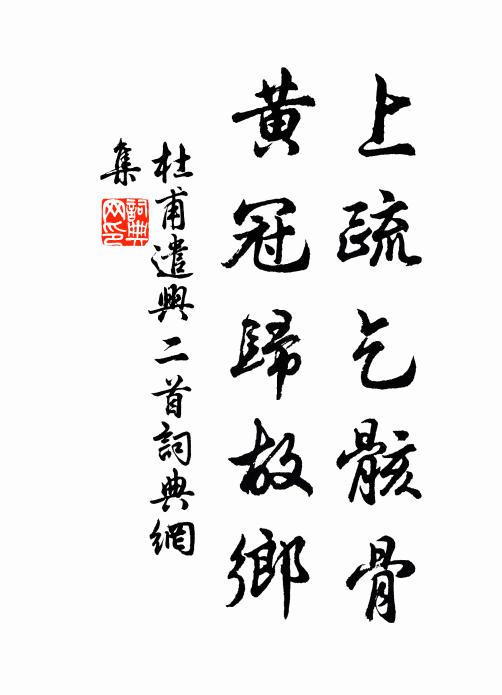 上疏乞骸骨
黃冠歸故鄉
杜甫遣興二首詞典網
集
詞典网印